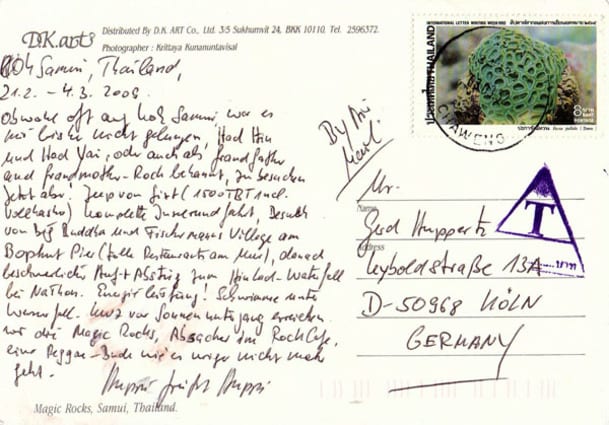 D.K. arts
Distributed By D.K. ART Co., Ltd. 3/5 Sukhumvit 24, BKK 10110, Tel. 2596372.
Photographer : Krittaya Kunanuntavisal
Koh Samui, Thailand,
21.2. – 4.3.
Obwohl oft auf Koh Samui, war es
mir bisher nicht gelungen, Had Hin
und Had Yai, oder auch als Grandfather
and Grandmother-Rock bekannt, zu besuchen
Jetzt aber! Jeep von First (1500 TBT incl.
Vollkasko) komplette Inselrundfahrt, Besuch
von Big Buddha und Fischermans Village am
Bophut Pier (tolle Restaurants am Meer), danach
beschwerliche Auf + Abstieg zum Hinlad-Waterfall
bei Nathon. Schwimme unterm
Wasserfall. Kurz vor Sonnenuntergang erreichen
wir die Magic Rocks, Absacker im Rock Cafe,
eine Reggae-Bude wie's uriger nicht mehr
geht.
Huppsi grüßt Huppsi
Magic Rocks, Samui, Thailand.
INTERNATIONAL LETTER WRITING WEEK
ประเทศไทย THAILAND
8 บาท
BAHT
POSTAGE
CHAWENG
By Air
Mail
T
Mr.
Name
Gerd Huppertz
Address
Leyboldstraße 13A
D-50968 KÖLN
GERMANY